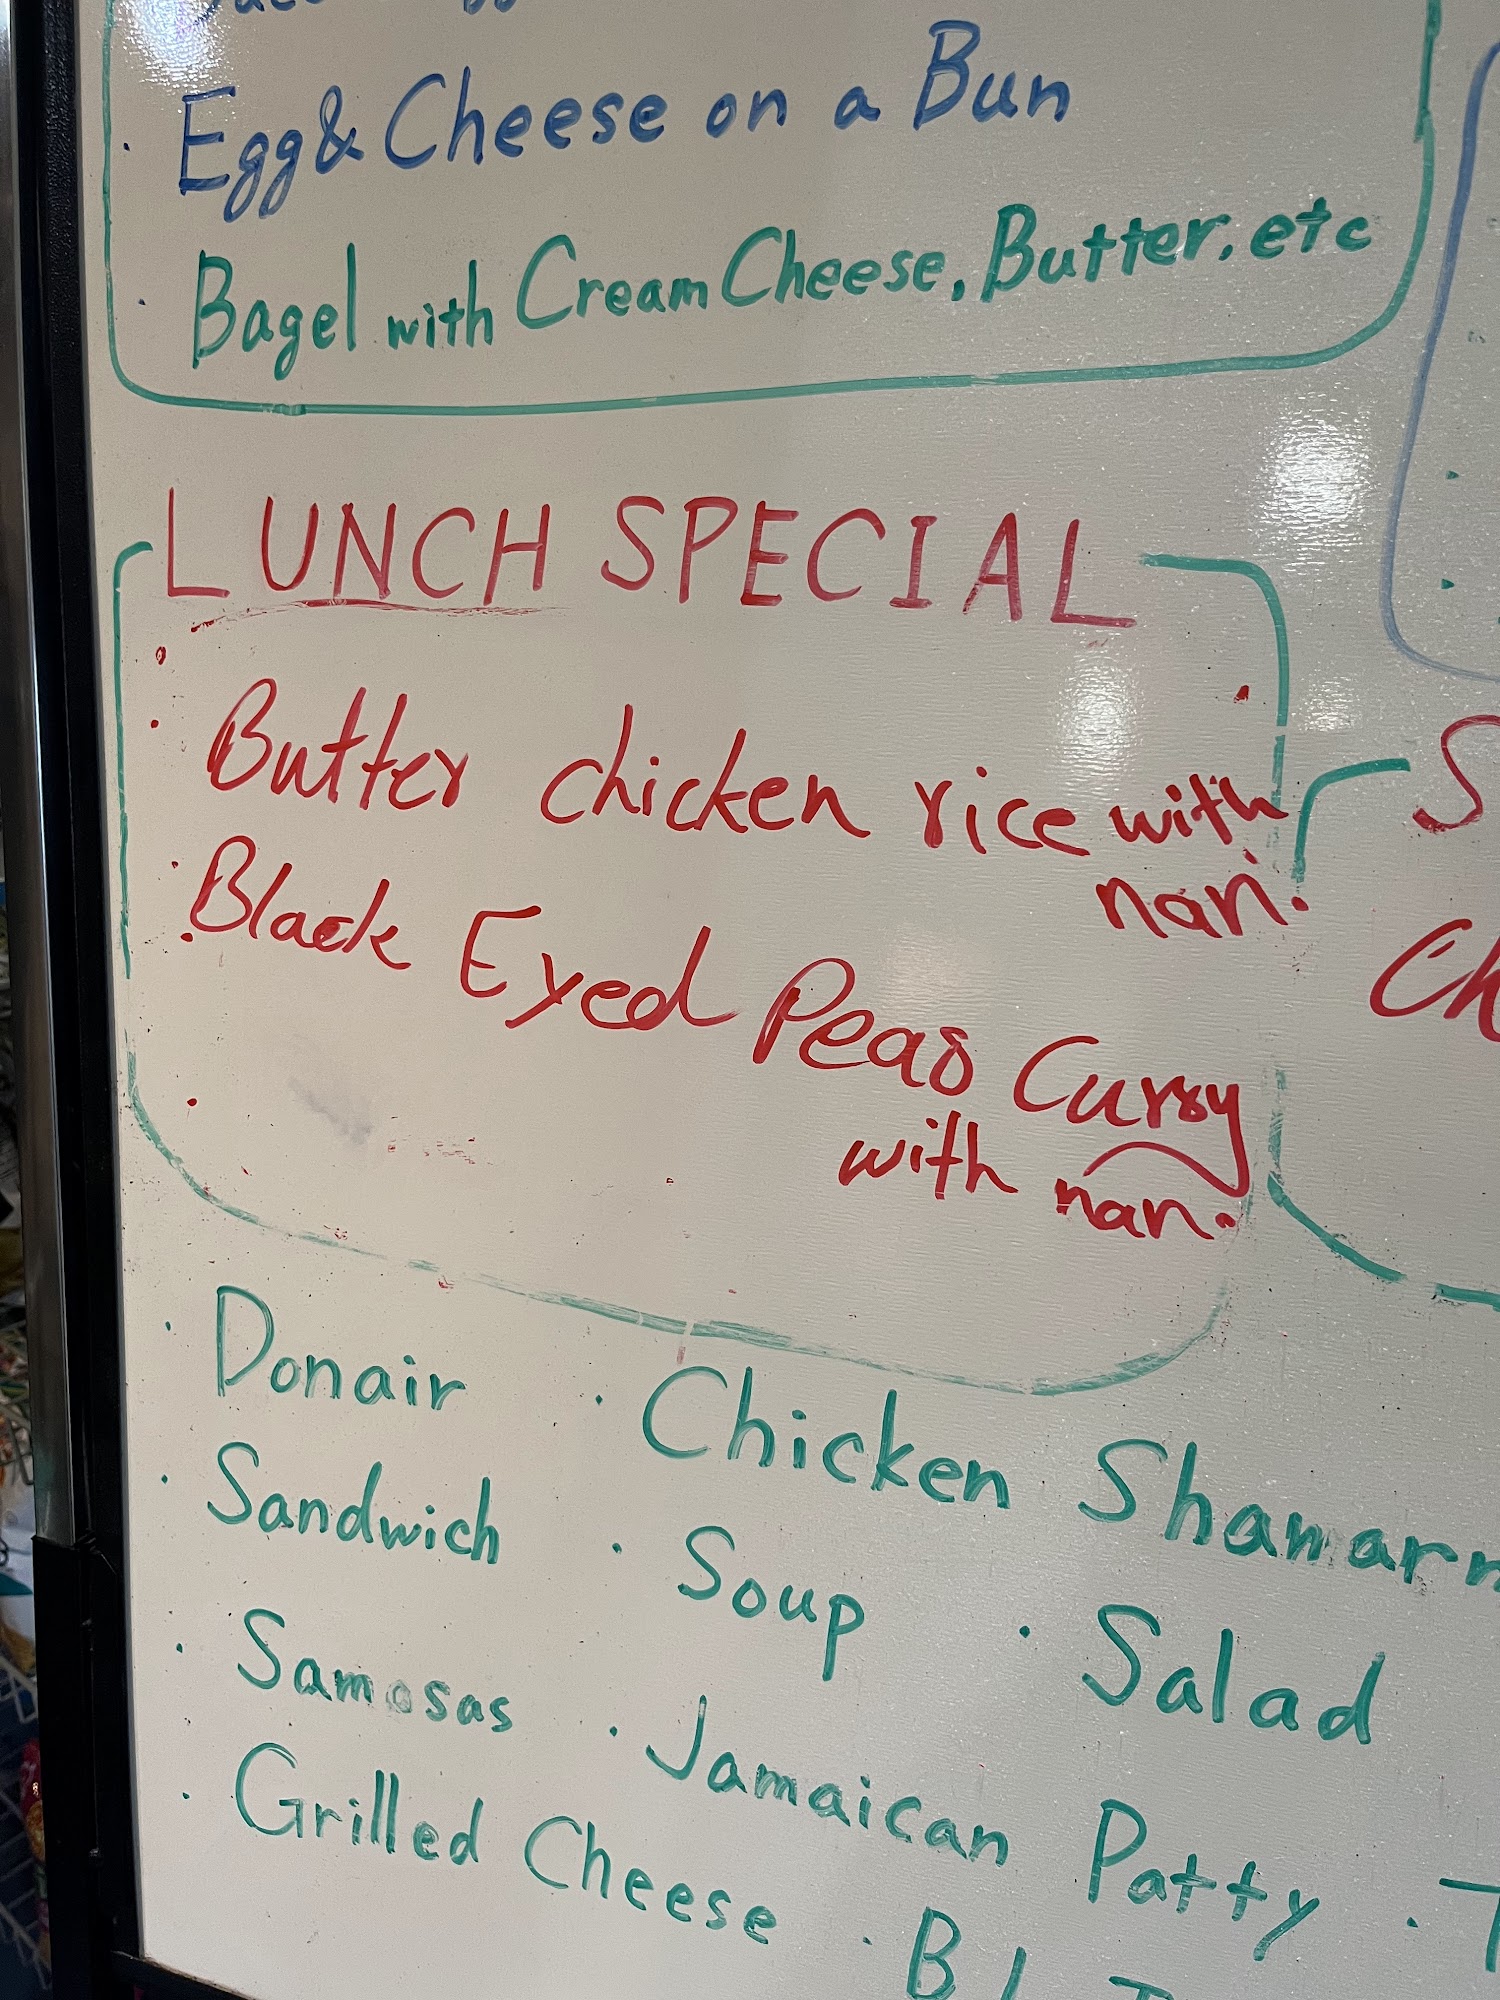 Egg & Cheese on a Bun
Bagel with Cream Cheese, Butter, etc
LUNCH SPECIAL
Butter chicken rice with
nan.
Black Eyed Peas Curry
with nan.
· Donair · Chicken
· Sandwich · Soup · Salad
· Samosas · Jamaican Patty
· Grilled Cheese